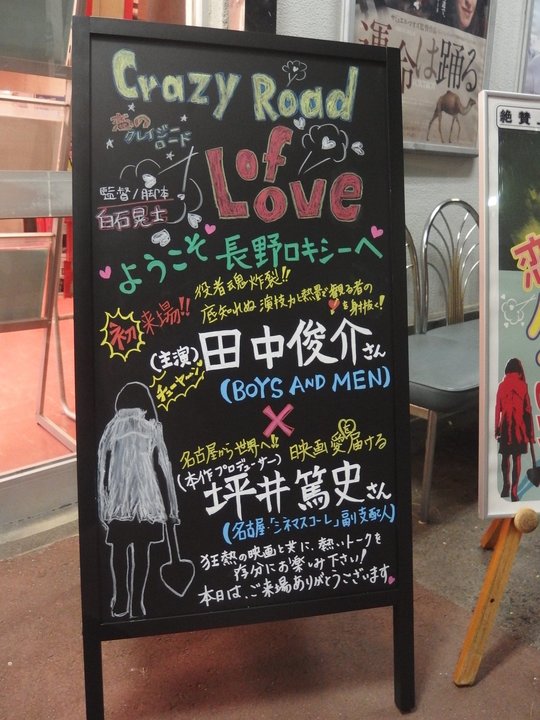 Crazy Road
of
Love
恋の
クレイジー
ロード
監督/脚本
白石晃士
ようこそ長野ロキシーへ
初来場!!
役者魂炸裂!!
底知れぬ演技力と熱量で観る者の
を射抜く!
(主演)
田中俊介さん
チューヤーン
(BOYS AND MEN)
×
名古屋から世界へ!! 映画愛届ける
(本作プロデューサー)
坪井篤史さん
(名古屋「シネマスコーレ」副支配人)
狂熱の映画と共に、熱いトークを
存分にお楽しみ下さい!
本日は、ご来場ありがとうございます。
運命は踊る
絶賛
恋